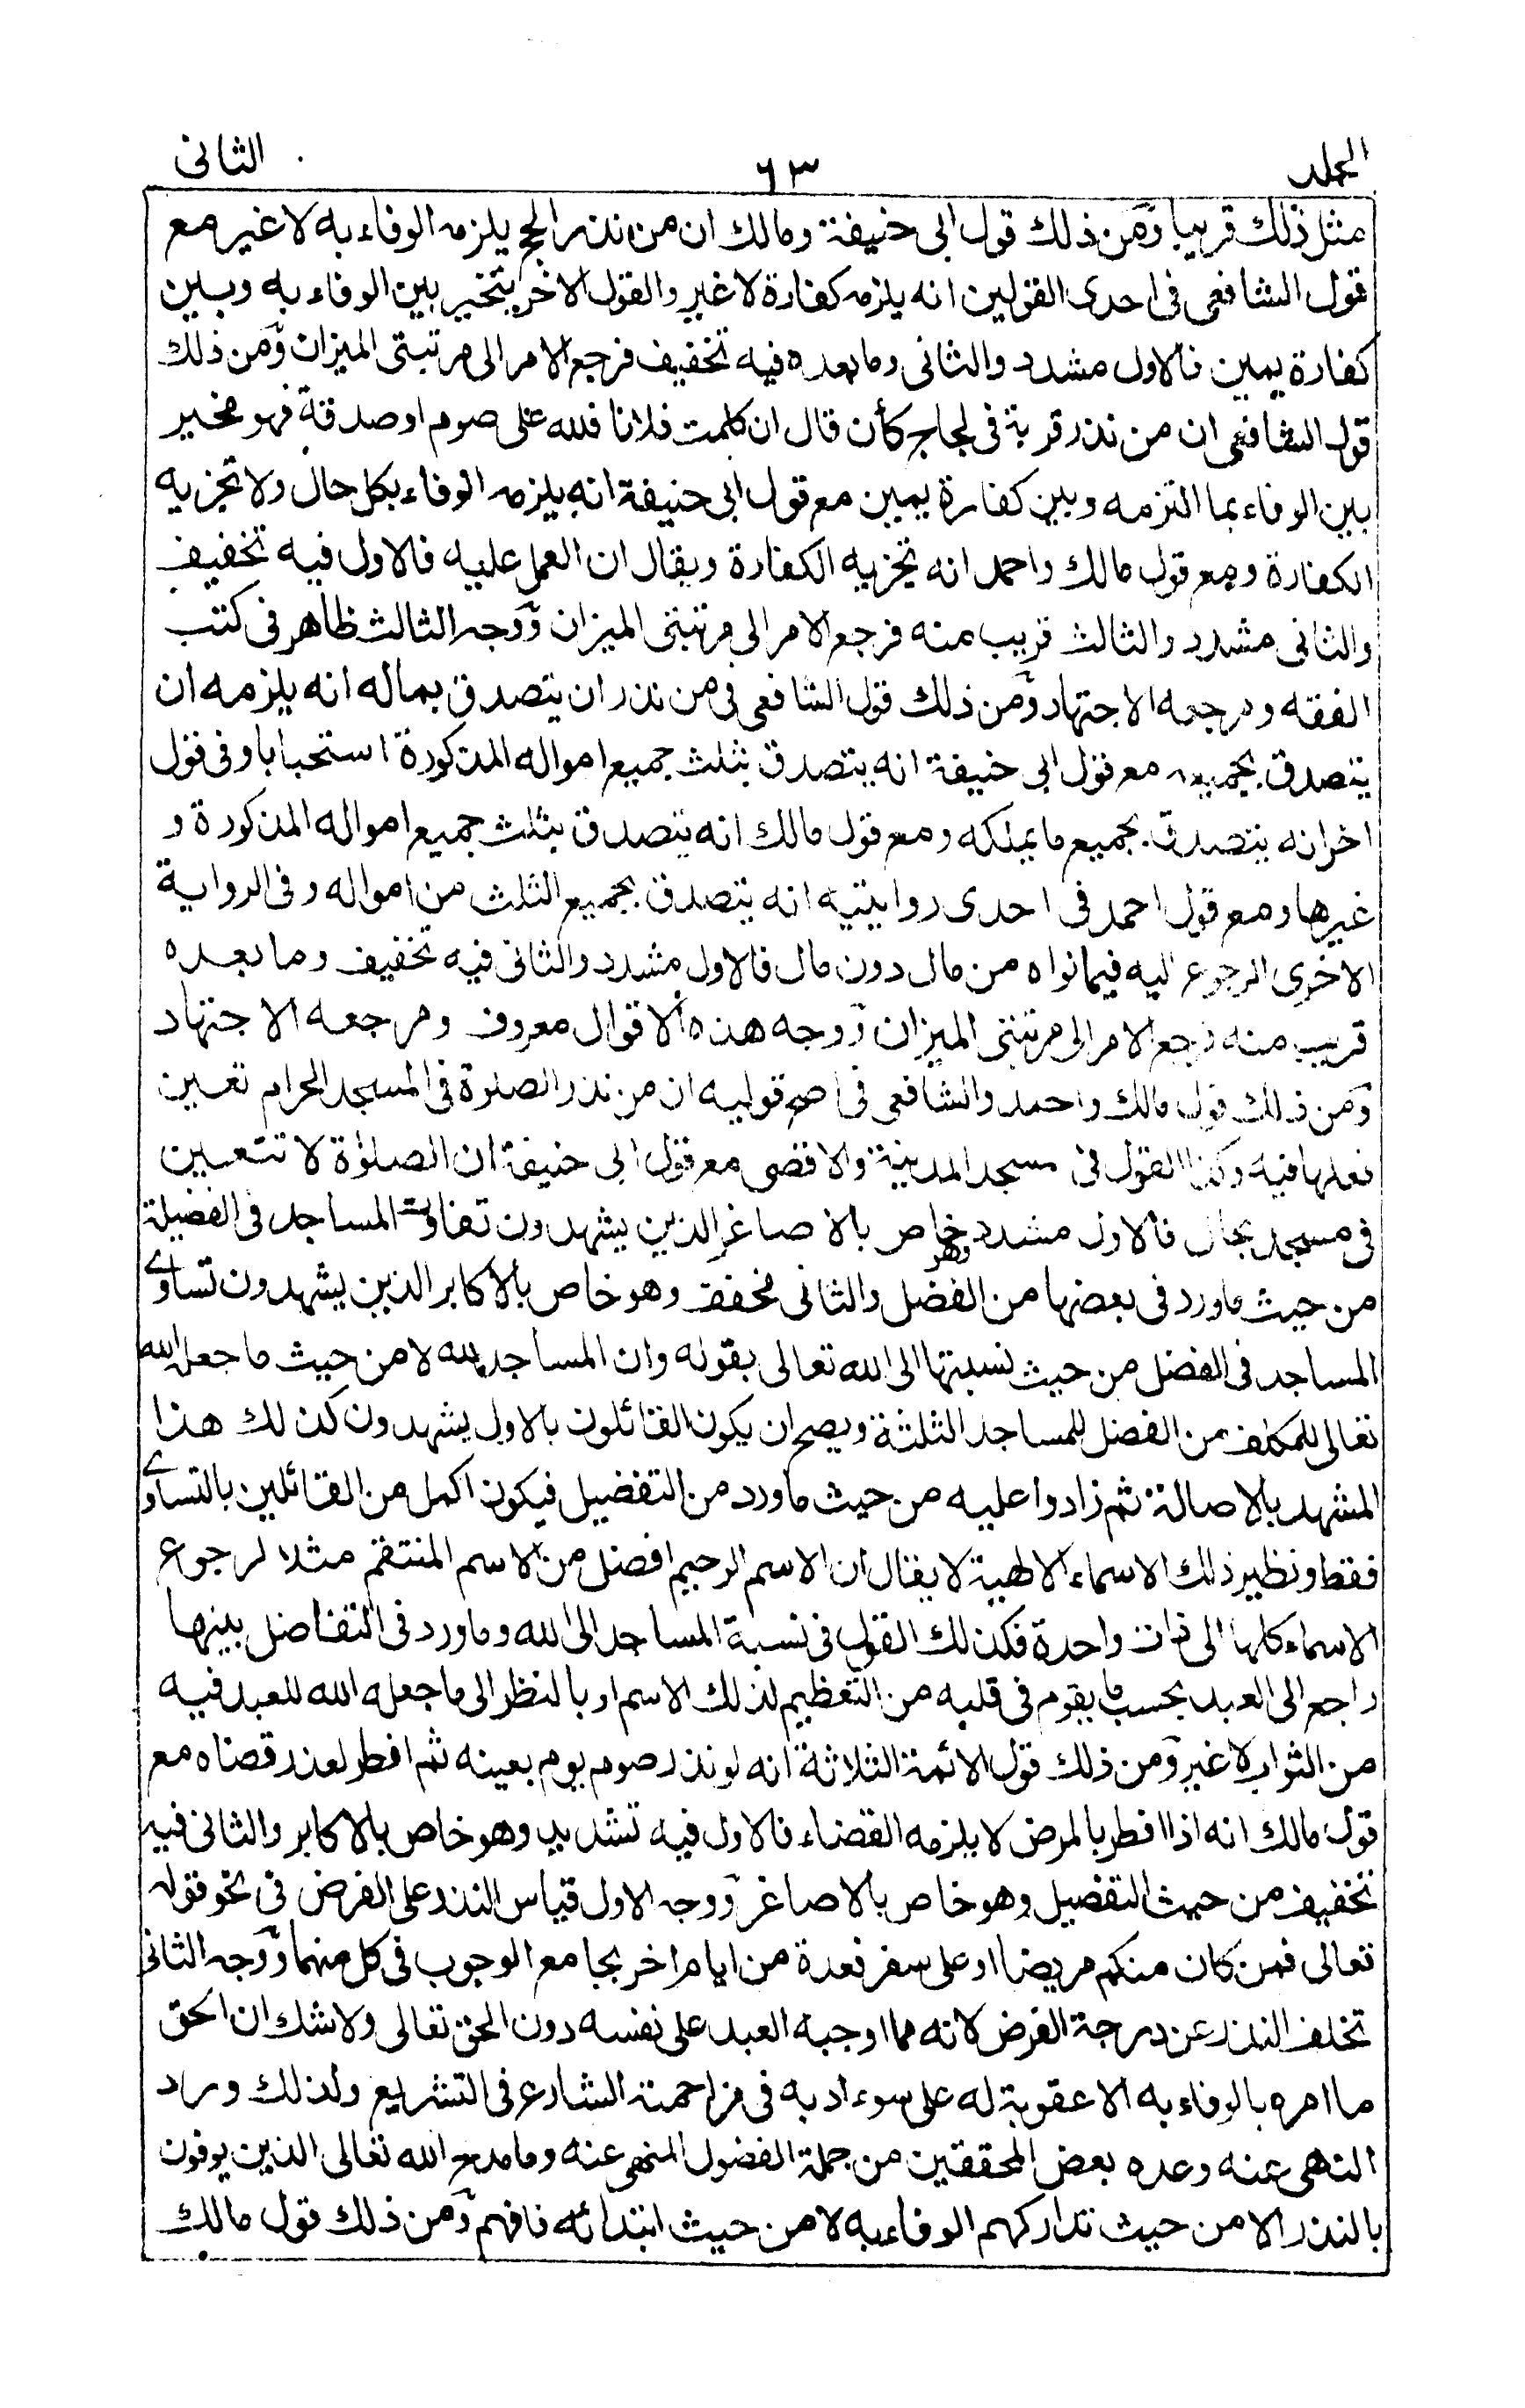 المجلد ٦٣ الثانى
مثل ذلك قريبا ومن ذلك قول ابى حنيفة ومالك ان من نذر الحج يلزمه الوفاء به لا غير مع
قول الشافعى فى احدى القولين انه يلزمه كفارة لا غير والقول الاخر يتخير بين الوفاء به وبين
كفارة يمين فالاول مشدد والثانى وما بعده فيه تخفيف فرجع الامر الى مرتبتى الميزان ومن ذلك
قول الشافعى ان من نذر قربة فى لجاج كأن قال ان كلمت فلانا فلله على صوم او صدقة فهو مخير
بين الوفاء بما التزمه وبين كفارة يمين مع قول ابى حنيفة انه يلزمه الوفاء بكل حال ولا تجزيه
الكفارة ومع قول مالك واحمد انه تجزيه الكفارة ويقال ان العمل عليه فالاول فيه تخفيف
والثانى مشدد والثالث قريب منه فرجع الامر الى مرتبتى الميزان ووجه الثالث ظاهر فى كتب
الفقه ومرجعه الاجتهاد ومن ذلك قول الشافعى فى من نذر ان يتصدق بماله انه يلزمه ان
يتصدق بجميعه مع قول ابى حنيفة انه يتصدق بثلث جميع امواله المذكورة استحبابا وفى قول
اخر انه يتصدق بجميع ما يملكه ومع قول مالك انه يتصدق بثلث جميع امواله المذكورة و
غيرها ومع قول احمد فى احدى روايتيه انه يتصدق بجميع الثلث من امواله وفى الرواية
الاخرى الرجوع اليه فيما نواه من مال دون مال فالاول مشدد والثانى فيه تخفيف وما بعده
قريب منه فرجع الامر الى مرتبتى الميزان ووجه هذه الاقوال معروف ومرجعه الاجتهاد
ومن ذلك قول مالك واحمد والشافعى فى اصح قوليه ان من نذر الصلوة فى المسجد الحرام تعين
فعلها فيه وكذا القول فى مسجد المدينة والاقصى مع قول ابى حنيفة ان الصلوٰة لا تتعين
فى مسجد بحال فالاول مشدد وهو خاص بالاصاغر الذين يشهدون تفاوت المساجد فى الفضيلة
من حيث ماورد فى بعضها من الفضل والثانى مخفف وهو خاص بالاكابر الذين يشهدون تساوى
المساجد فى الفضل من حيث نسبتها الى الله تعالى بقوله وان المساجد لله لا من حيث ما جعل الله
تعالى للمكلف من الفضل للمساجد الثلثة ويصح ان يكون القائلون بالاول يشهدون كذلك هذا
المشهد بالاصالة ثم زادوا عليه من حيث ماورد من التفضيل فيكون اكمل من القائلين بالتساوى
فقط ونظير ذلك الاسماء الالهية لا يقال ان الاسم الرحيم افضل من الاسم المنتقم مثلا لرجوع
الاسماء كلها الى ذات واحدة فكذلك القول فى نسبة المساجد الى الله وماورد فى التفاضل بينها
راجع الى العبد بحسب ما يقوم فى قلبه من التعظيم لذلك الاسم او بالنظر الى ما جعله الله للعبد فيه
من الثواب لا غير ومن ذلك قول الائمة الثلاثة انه لو نذر صوم يوم بعينه ثم افطر لعذر قضاه مع
قول مالك انه اذا افطر بالمرض لا يلزمه القضاء فالاول فيه تشديد وهو خاص بالاكابر والثانى فيه
تخفيف من حيث التفضيل وهو خاص بالاصاغر ووجه الاول قياس النذر على الفرض فى نحو قوله
تعالى فمن كان منكم مريضا او على سفر فعدة من ايام اخر بجامع الوجوب فى كل منهما ووجه الثانى
تخلف النذر عن درجة الفرض لانه مما اوجبه العبد على نفسه دون الحق تعالى ولا شك ان الحق
ما امره بالوفاء به الا عقوبة له على سوء ادبه فى مزاحمة الشارع فى التشريع ولذلك ورد
النهى عنه وعده بعض المحققين من جملة الفضول المنهى عنه وما مدح الله تعالى الذين يوفون
بالنذر الا من حيث تداركهم الوفاء به لا من حيث ابتدائه فافهم ومن ذلك قول مالك